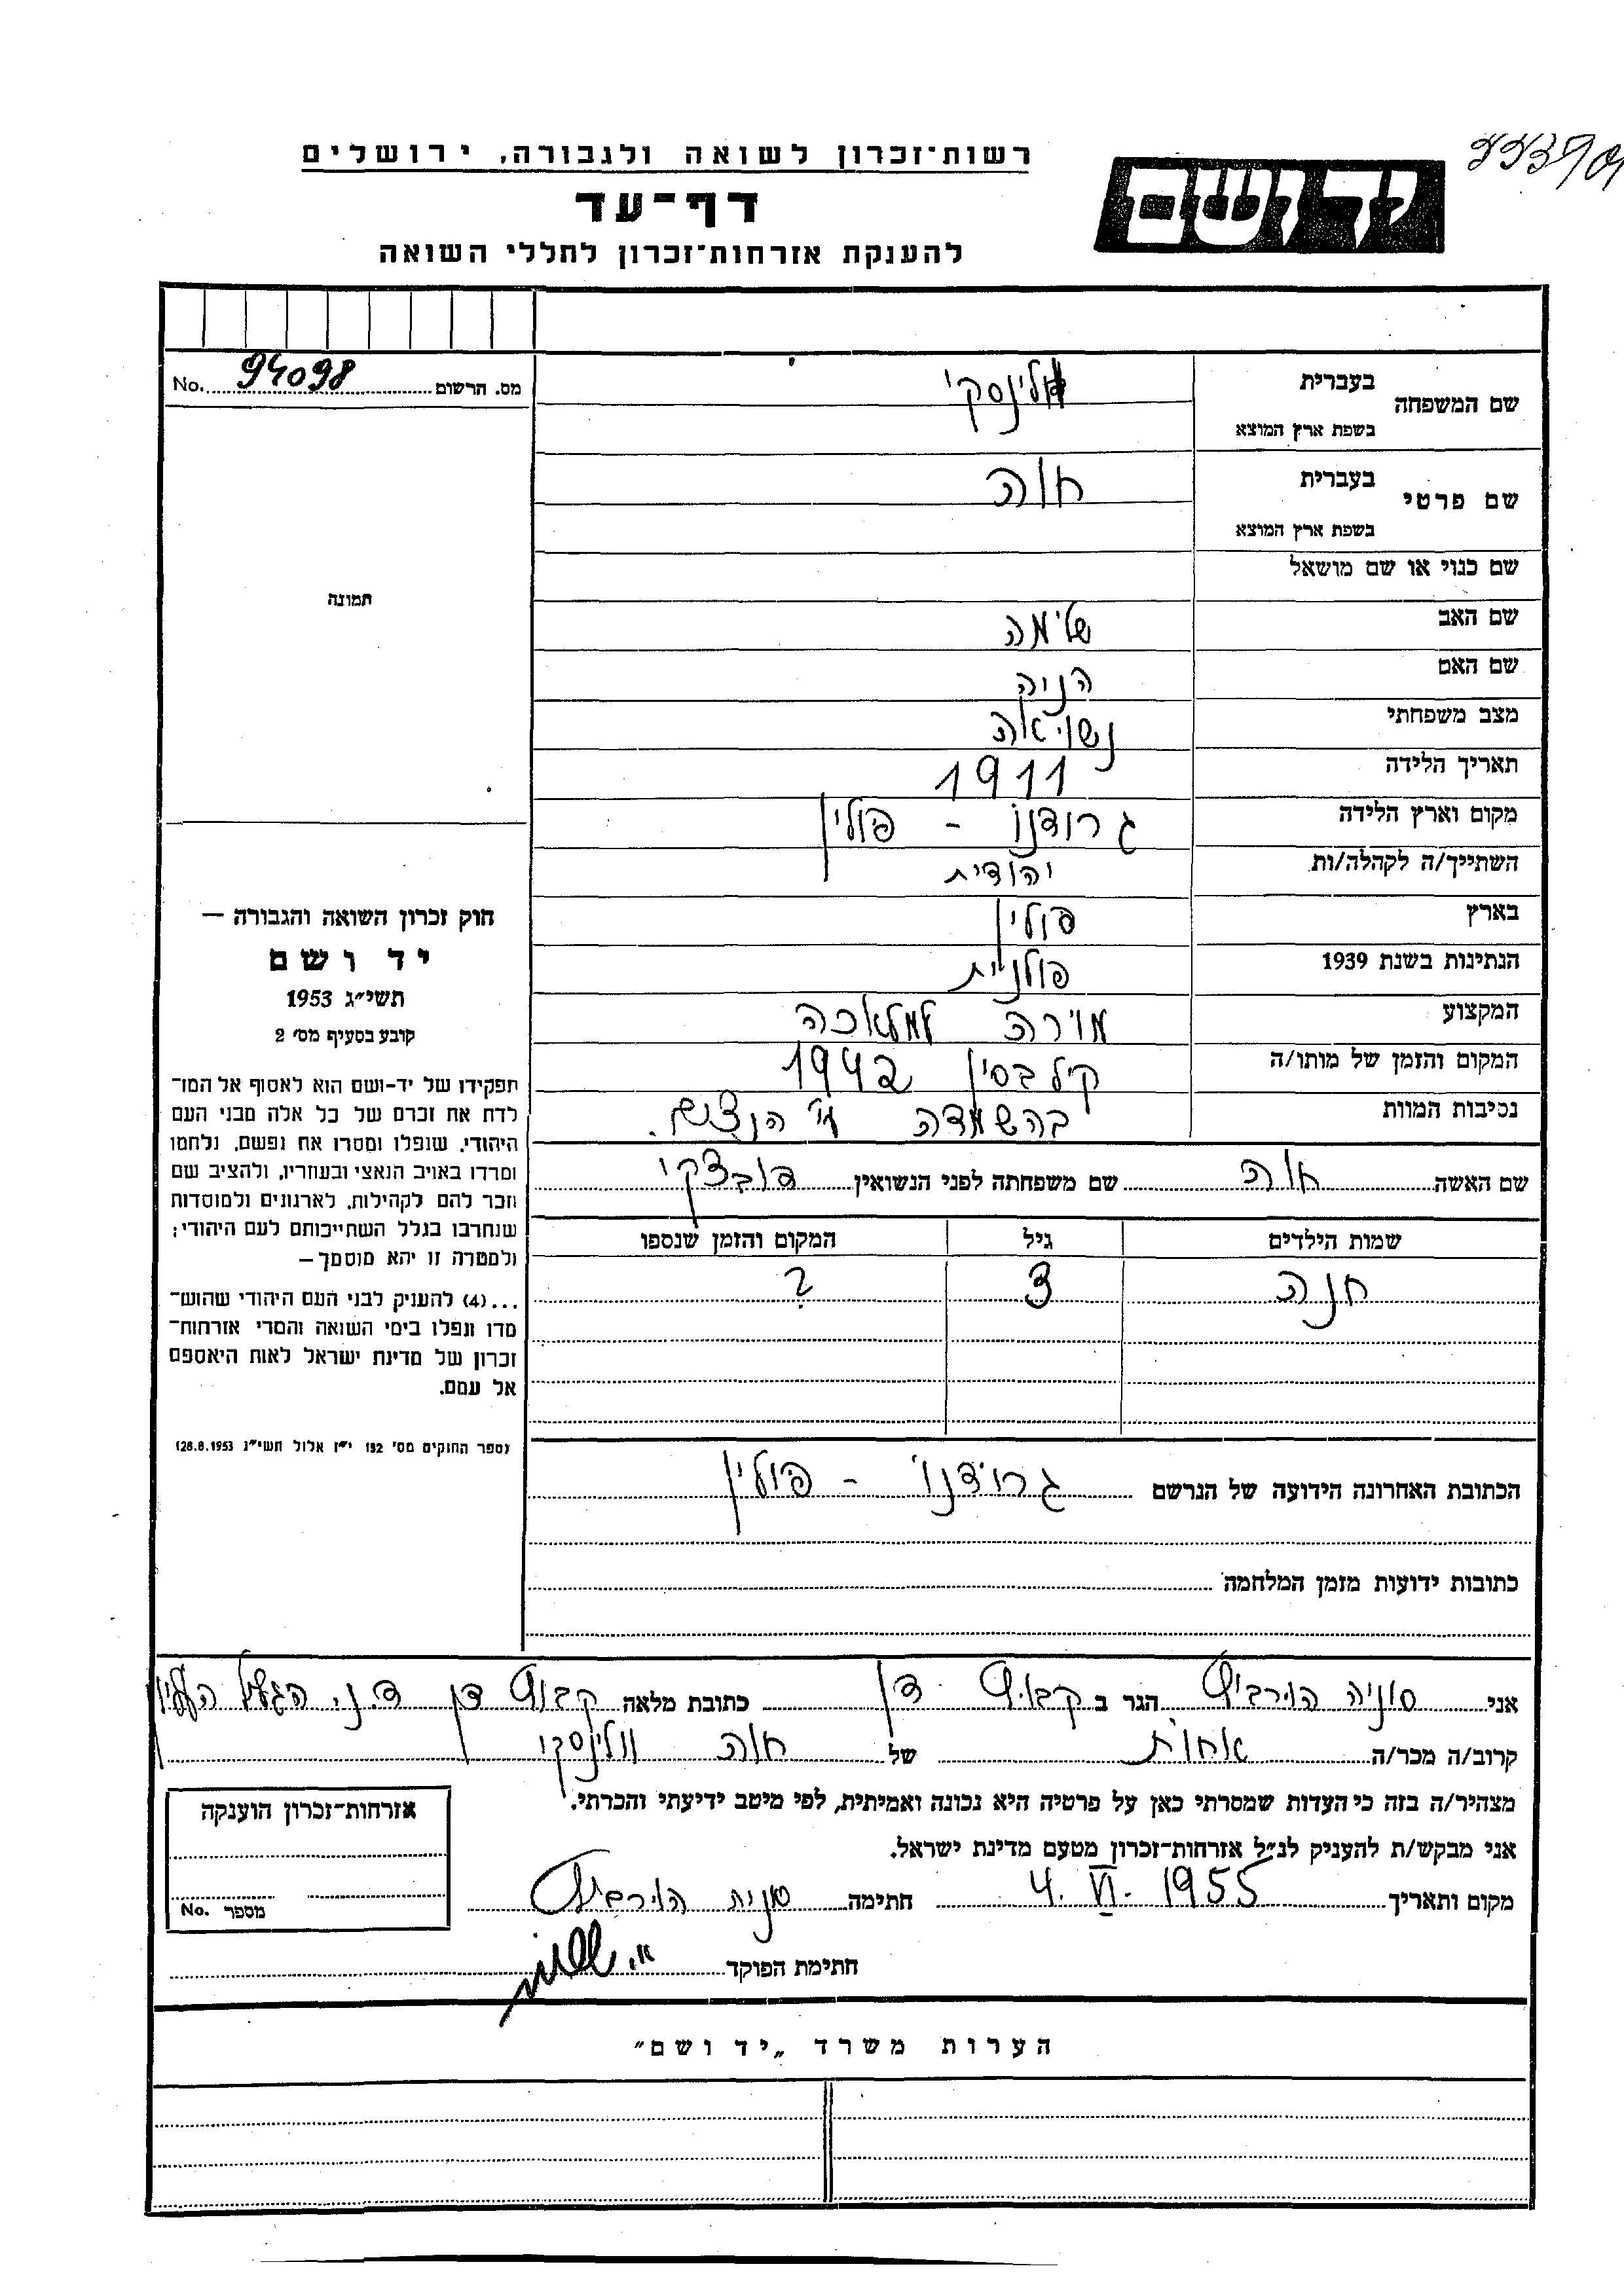 רשות־זכרון לשואה ולגבורה, ירושלים
דף־עד
להענקת אזרחות־זכרון לחללי השואה
ידושם
מס. הרשום 94098 No.
שם המשפחה
בעברית ולינסקי
בשפת ארץ המוצא
שם פרטי
בעברית חוה
בשפת ארץ המוצא
שם כנוי או שם מושאל
שם האב שלימה
שם האם הניה
מצב משפחתי נשויאה
תאריך הלידה 1911
מקום וארץ הלידה גרודנו - פולין
השתייך/ה לקהלה/ות יהודית
בארץ פולין
הנתינות בשנת 1939 פולנית
המקצוע מורה למלאכה
המקום והזמן של מותו/ה קילבסין 1942
נסיבות המוות בהשמדה ע"י הנצים.
שם האשה חוה שם משפחתה לפני הנשואין סובצקי
שמות הילדים גיל המקום והזמן שנספו
חנה 3 ?
הכתובת האחרונה הידועה של הנרשם גרודנו - פולין
כתובות ידועות מזמן המלחמה
תמונה
חוק זכרון השואה והגבורה —
יד ושם
תשי״ג 1953
קובע בסעיף מס׳ 2
תפקידו של יד-ושם הוא לאסוף אל המו־
לדת את זכרם של כל אלה מבני העם
היהודי, שנפלו ומסרו את נפשם, נלחמו
ומרדו באויב הנאצי ובעוזריו, ולהציב שם
וזכר להם לקהילות, לארגונים ולמוסדות
שנחרבו בגלל השתייכותם לעם היהודי;
ולמטרה זו יהא מוסמך—
...(4) להעניק לבני העם היהודי שהוש־
מדו ונפלו בימי השואה והמרי אזרחות־
זכרון של מדינת ישראל לאות היאספם
אל עמם.
(ספר החוקים מס׳ 132 י״ז אלול תשי״ג 28.8.1953)
אני סוניה הורביץ הגר ב קבוץ דן כתובת מלאה קבוץ דן ד.נ. הגליל העליון
קרוב/ה מכר/ה אחות של חוה וולינסקי
מצהיר/ה בזה כי העדות שמסרתי כאן על פרטיה היא נכונה ואמיתית, לפי מיטב ידיעתי והכרתי.
אני מבקש/ת להעניק לנ״ל אזרחות־זכרון מטעם מדינת ישראל.
מקום ותאריך 4. VI. 1955 חתימה סוניה הורביץ
חתימת הפוקד
אזרחות־זכרון הוענקה
מספר No.
הערות משרד „יד ושם״